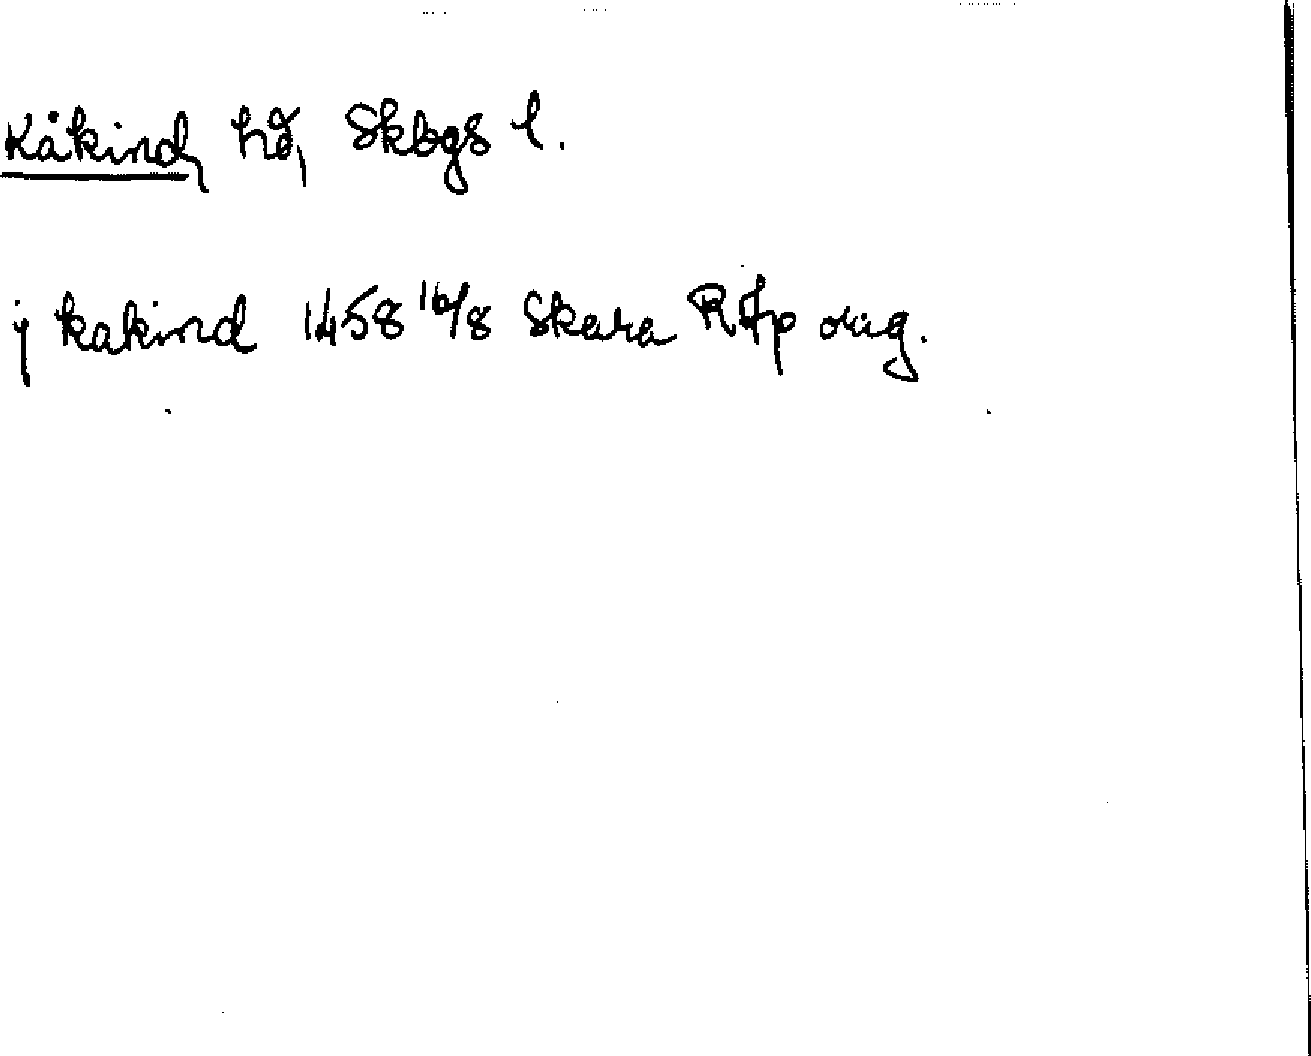 Kåkind, hd, Skbgs l.
j kakind 1458 16/8 Skara RAp orig.